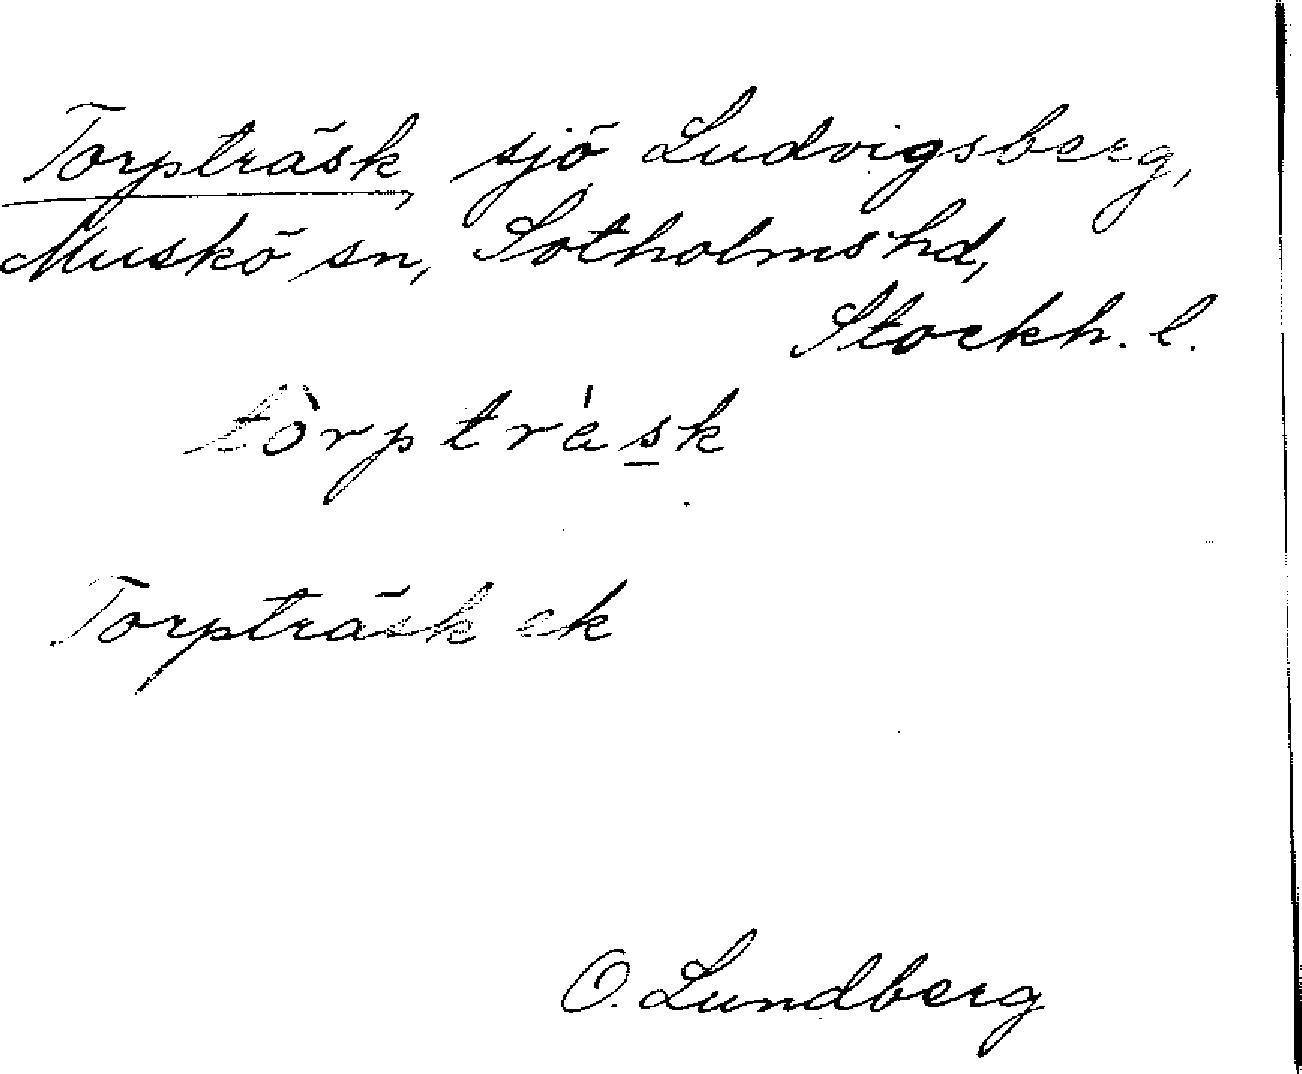 Torpträsk, sjö Ludvigsberg,
Muskö sn, Sotholms hd,
Stockh. l.
tòrptrásk
Torpträsk ek
O. Lundberg